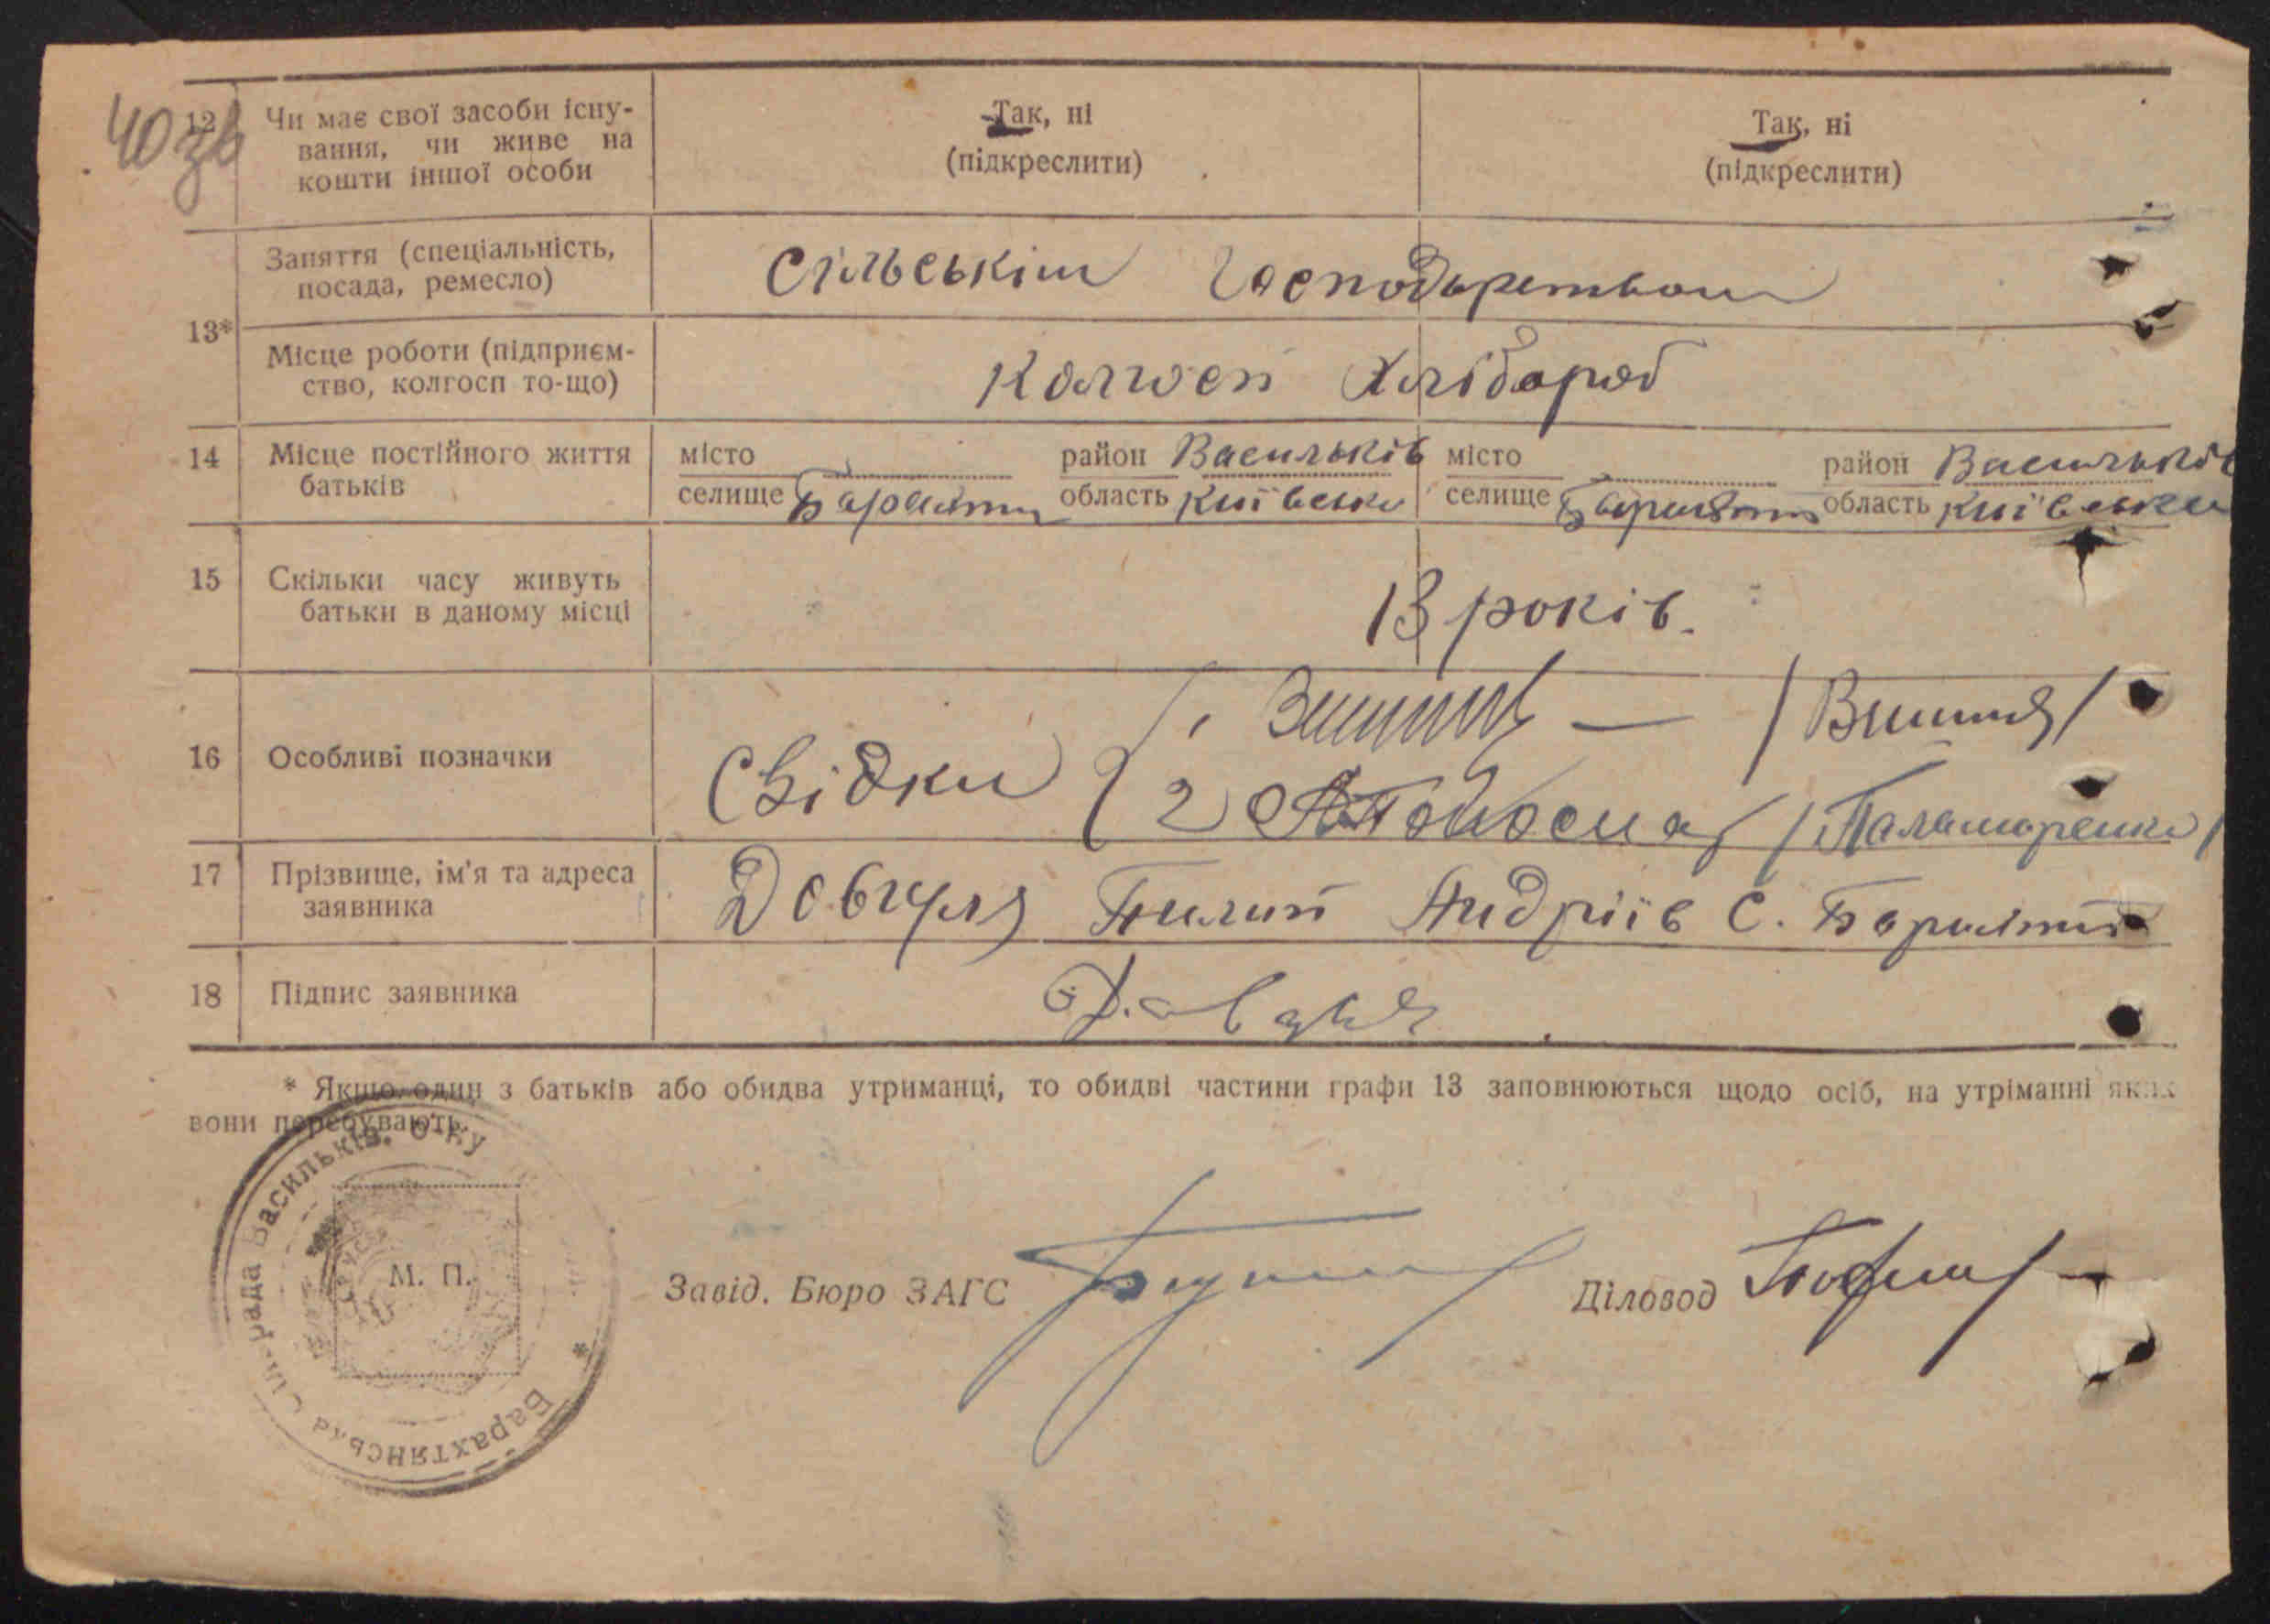 40 зв
12 Чи має свої засоби існу-
вання, чи живе на
кошти іншої особи
Так, ні
(підкреслити)
Так, ні
(підкреслити)
13*
Заняття (спеціальність,
посада, ремесло)
Сільськім Господарством
Місце роботи (підприєм-
ство, колгосп то-що)
Колгосп Хлібороб
14 Місце постійного життя
батьків
місто
селище Барахти
район Васильків
область Київська
місто
селище Барахти
район Васильків
область Київська
15 Скільки часу живуть
батьки в даному місці
13 років.
16 Особливі позначки
Свідки
1
2
/Паламаренко/
17 Прізвище, ім'я та адреса
заявника
Довгуля Пилип Андріїв С. Барахти
18 Підпис заявника
* Якщо один з батьків або обидва утриманці, то обидві частини графи 13 заповнюються щодо осіб, на утріманні яких
вони перебувають.
Барахтянська Сільрада Васильків. о-ку
М. П.
Завід. Бюро ЗАГС
Діловод